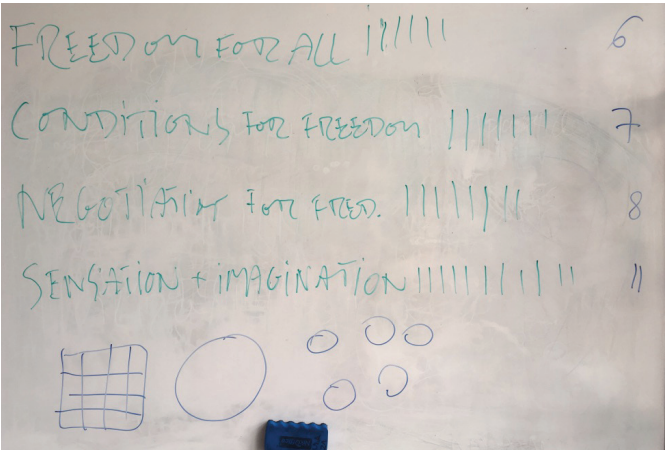 FREEDOM FOR ALL |||||| 6
CONDITIONS FOR FREEDOM ||||||| 7
NEGOTIATING FOR FRED. |||||||| 8
SENSATION + IMAGINATION ||||||||||| 11